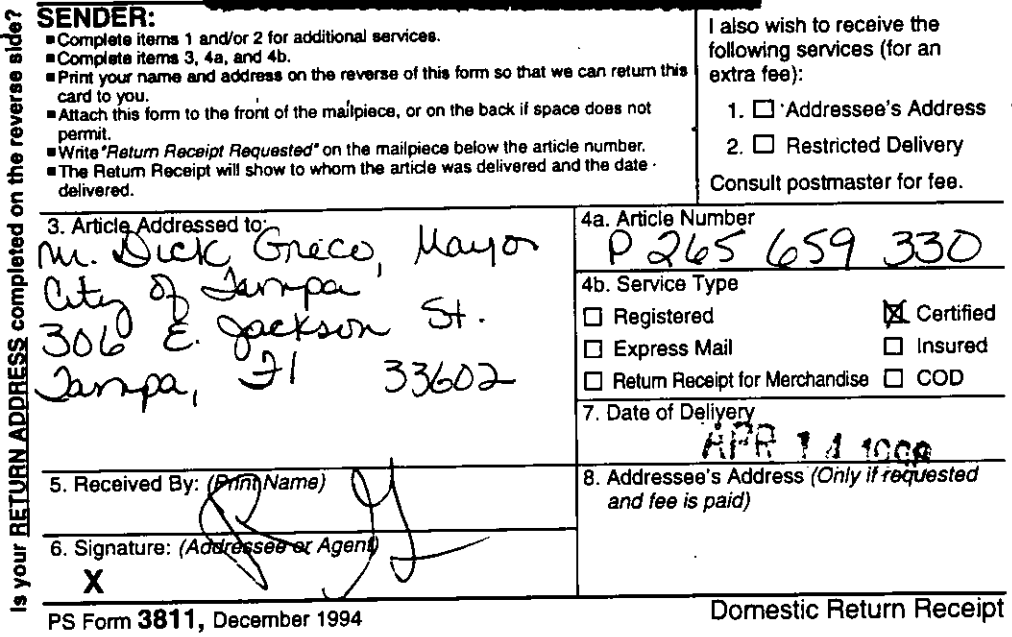 Is your RETURN ADDRESS completed on the reverse side?
SENDER:
■Complete items 1 and/or 2 for additional services.
■Complete items 3, 4a, and 4b.
■Print your name and address on the reverse of this form so that we can return this
card to you.
■Attach this form to the front of the mailpiece, or on the back if space does not
permit.
■Write "Return Receipt Requested" on the mailpiece below the article number.
■The Return Receipt will show to whom the article was delivered and the date
delivered.
I also wish to receive the
following services (for an
extra fee):
1. ☐ Addressee's Address
2. ☐ Restricted Delivery
Consult postmaster for fee.
3. Article Addressed to:
Mr. Dick Greco, Mayor
City of Tampa
306 E. Jackson St.
Tampa, Fl 33602
4a. Article Number
P 265 659 330
4b. Service Type
☐ Registered ☒ Certified
☐ Express Mail ☐ Insured
☐ Return Receipt for Merchandise ☐ COD
7. Date of Delivery
APR 14
5. Received By: (Print Name)
6. Signature: (Addressee or Agent)
X
8. Addressee's Address (Only if requested
and fee is paid)
PS Form 3811, December 1994
Domestic Return Receipt